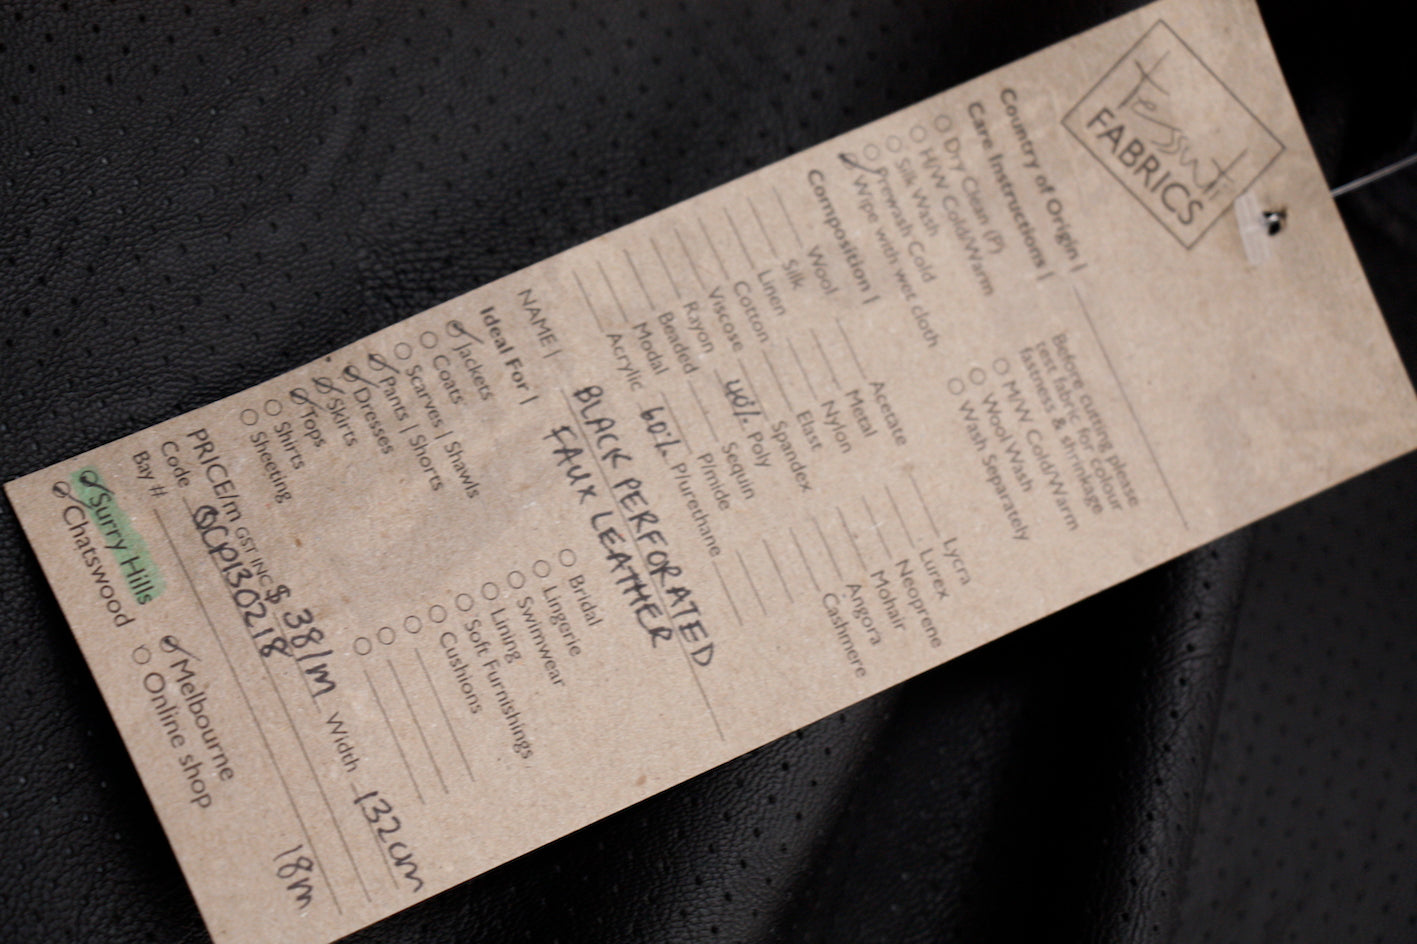 Tessuti
FABRICS
Country of Origin |
Care Instructions |
Dry Clean (P)
H/W Cold/Warm
Silk Wash
Prewash Cold
Wipe with wet cloth
Before cutting please
test fabric for colour
fastness & shrinkage
M/W Cold/Warm
Wool Wash
Wash Separately
Composition |
Wool
Silk
Linen
Cotton
Viscose
Rayon
Beaded
Modal
Acrylic
Acetate
Metal
Nylon
Elast
Spandex
40% Poly
Sequin
P/mide
60% P/urethane
Lycra
Lurex
Neoprene
Mohair
Angora
Cashmere
NAME | BLACK PERFORATED
FAUX LEATHER
Ideal For |
Jackets
Coats
Scarves | Shawls
Pants | Shorts
Dresses
Skirts
Tops
Shirts
Sheeting
Bridal
Lingerie
Swimwear
Lining
Soft Furnishings
Cushions
PRICE/m GST INC $38/m Width 132cm
Code SCP130218
Bay # 18m
Surry Hills
Chatswood
Melbourne
Online shop